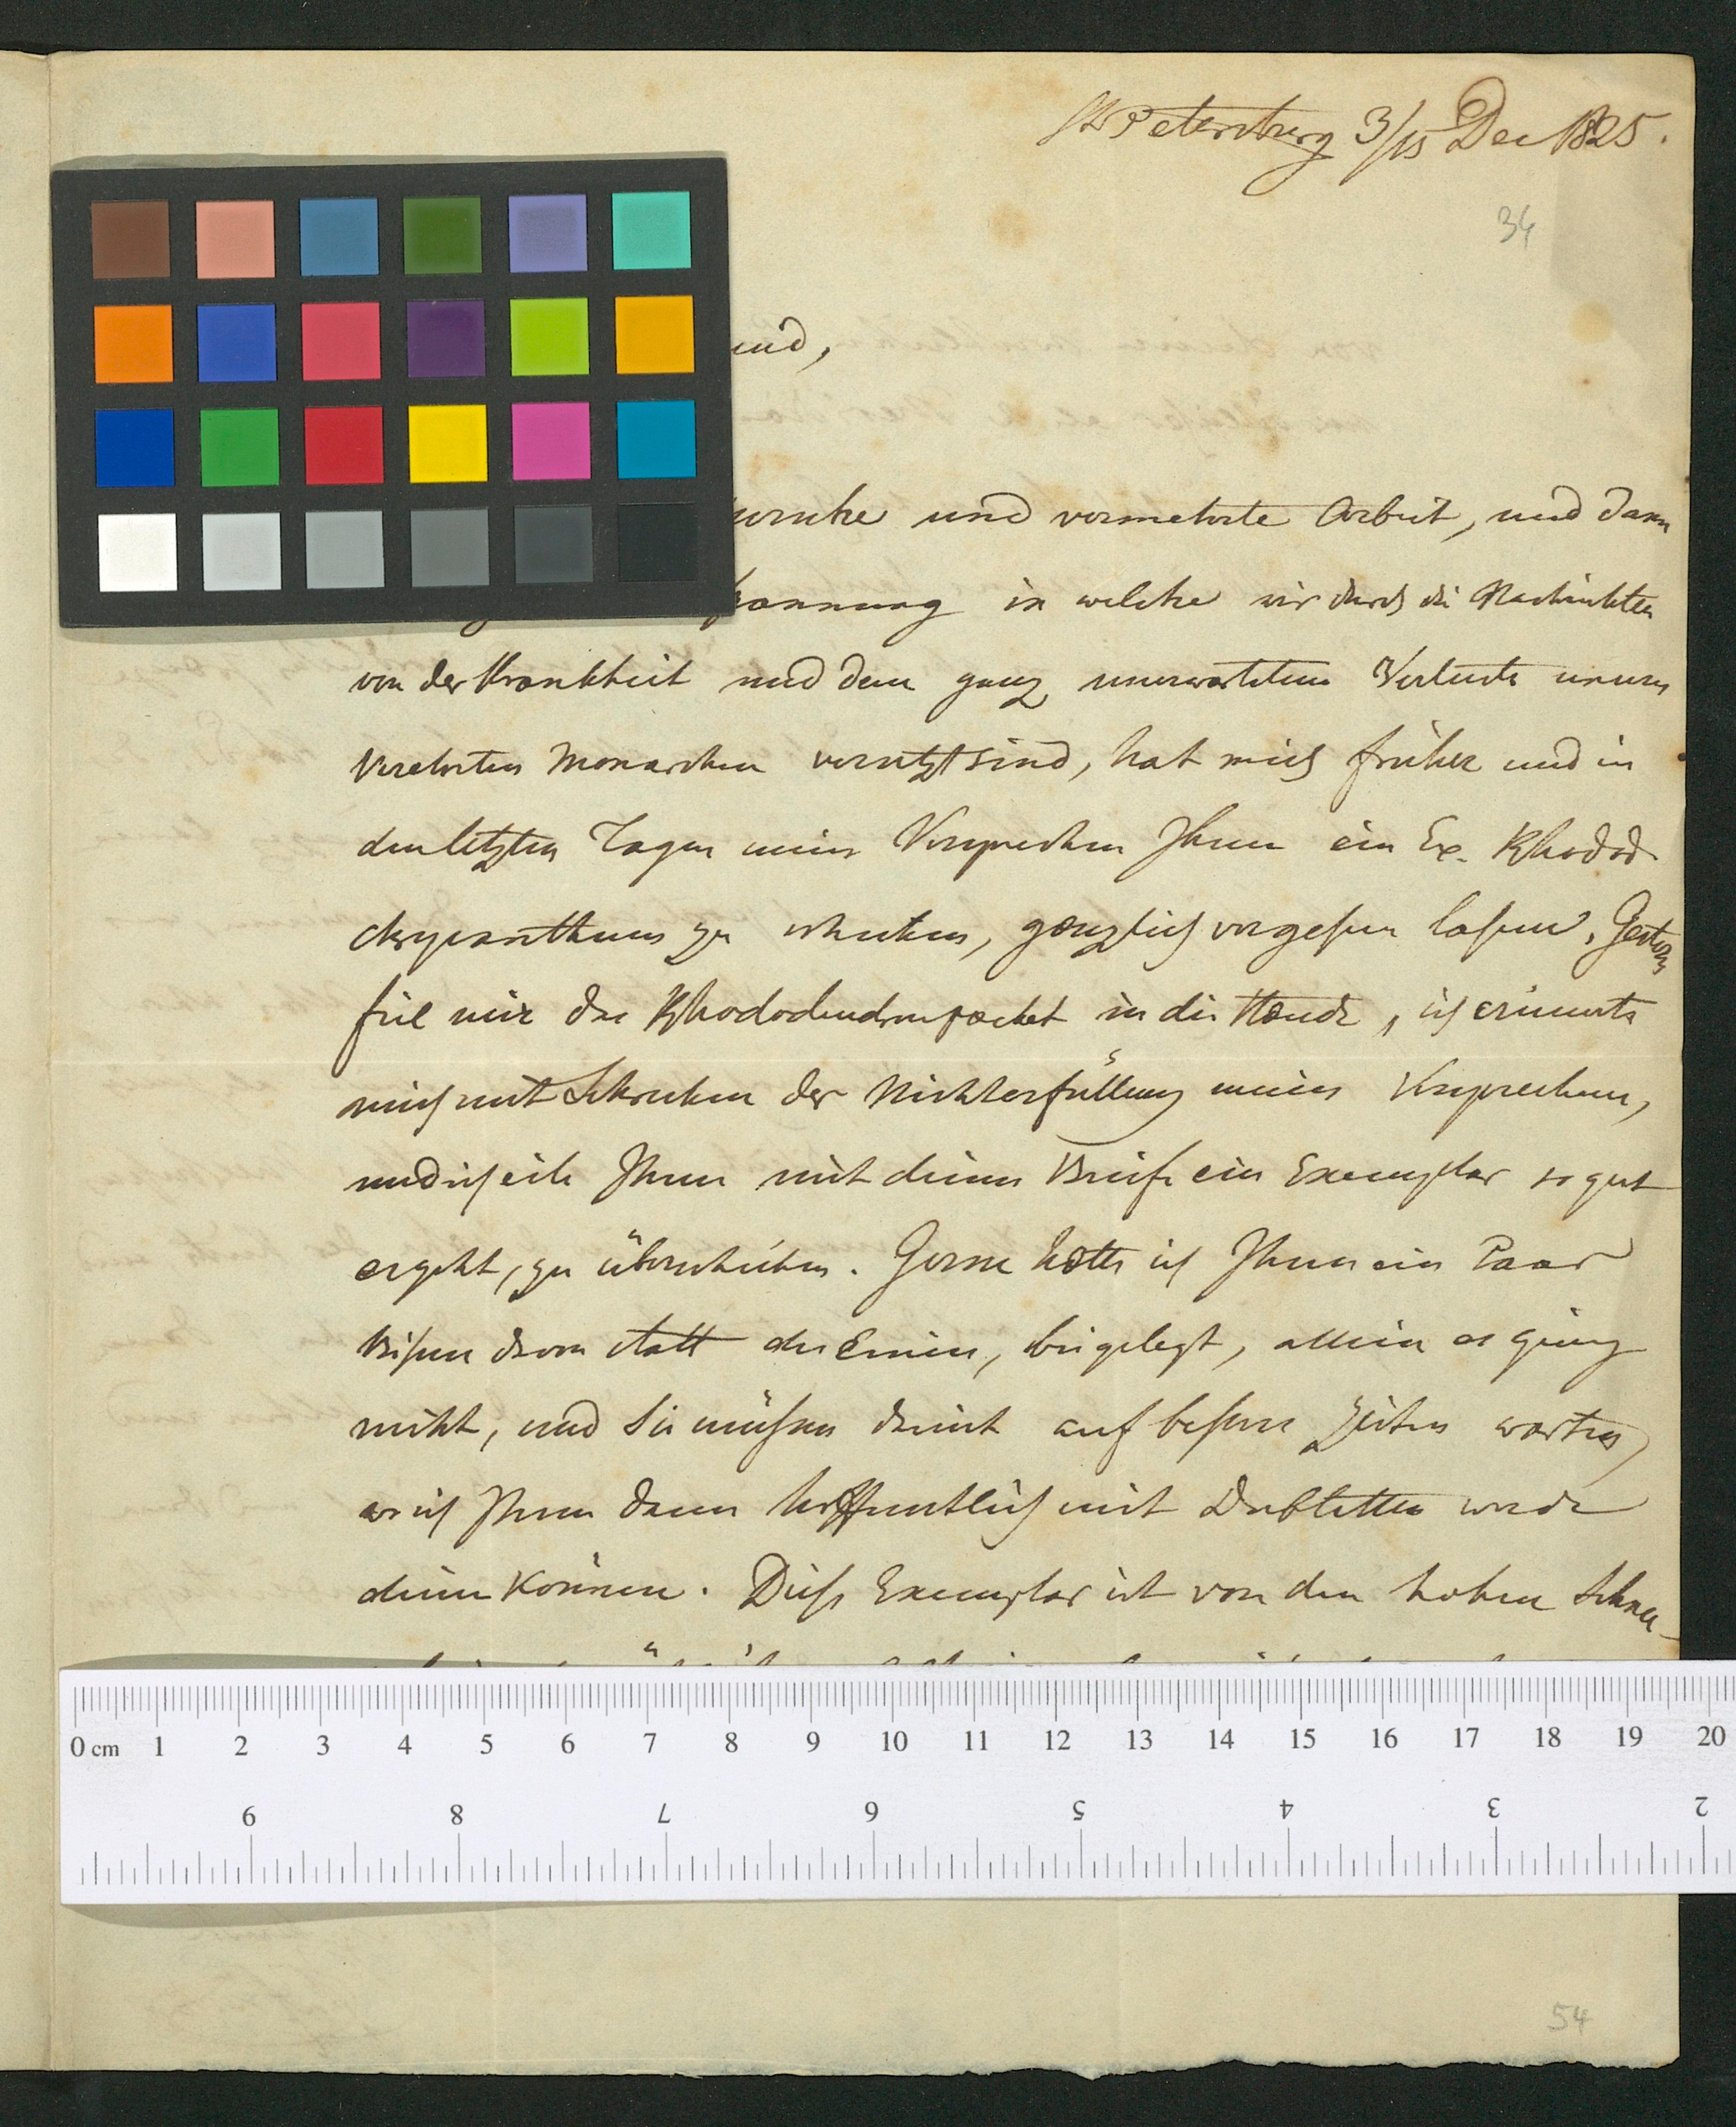 St Petersburg 3/15 Dec 1825.
34
und,
und vermehrte Arbeit, und dann
pannung in welche wir durch die Nachrichten
von der Krankheit und dem ganz unerwarteten Verluste unsers
Verehrten Monarchen versetzt sind, hat mich früher und in
den letzten Tagen mein Versprechen Ihnen ein Ex. Rhodod.
chrysanthum zu schicken, gänzlich vergessen lassen. Gestern
fiel mir das Rhododendronpacket in die Hände, ich erinnerte
mich mit Schrecken der Nichterfüllung meines Versprechens,
und ich eile Ihnen mit diesem Briefe ein Exemplar so gut
es geht, zu überschicken. Gerne hätte ich Ihnen ein Paar
davon statt des Einen, beigelegt, allein es ging
nicht, und Sie müssen damit auf bessere Zeiten warten,
wo ich Ihnen dann hoffentlich mit Dubletten werde
dienen können. Dieß Exemplar ist von den hohen Schnee-
0 cm 1 2 3 4 5 6 7 8 9 10 11 12 13 14 15 16 17 18 19 20
9 8 7 6 5 4 3 2
54